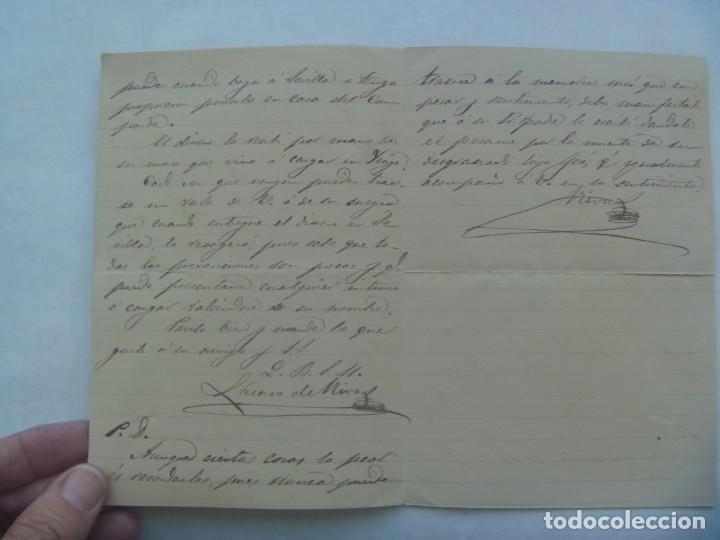 puede cuando vaya á Sevilla o tenga
proporcion ponerlo en casa del Com-
padre.
El dinero lo recibí por mano de
su mozo que vino á cargar en Viaje.
Cada vez que vengan pueden traer-
se un vale de V. ó de su suegro
que cuando entregue el dinero en Se-
villa, lo recogerá, pues sabe que to-
das las precauciones son pocas y q.
puede presentarse cualquier intruso
á cargar valiendose de su nombre.
Páselo bien y mande lo que
guste á su amigo y S.S.
Q. B. S. M.
de Rivas
P.D.
Aunque ciertas cosas lo peor
és recordarlas, pues nunca puede
traerse á la memoria más que con
pesar y sentimiento, debo manifestarle
que á su Sr. padre le escribí dandole
el pesame por la muerte de su
desgraciado hijo José, é igualmente
acompaño á V. en su sentimiento.
Rivas
todocoleccion
todocoleccion.net